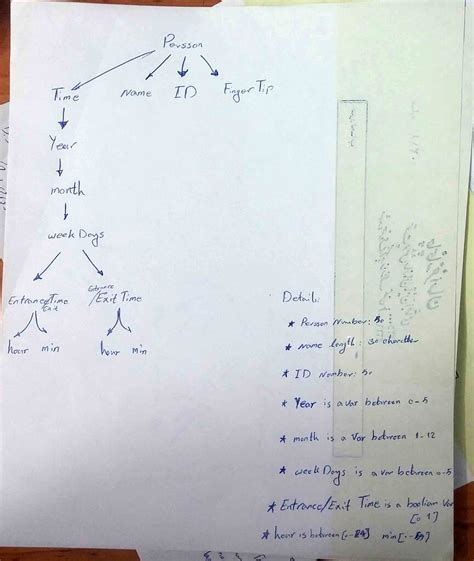 Persson
Time Name ID Finger Tip
Year
month
week Days
Entrance/Time Exit
Entrance/Exit Time
hour min hour min
Details:
* Persson Number: 50
* name length: 30 charecter
* ID Number: 50
* Year is a var between 0-5
* month is a Var between 1-12
* week Days is a var between 0-5
* Entrance/Exit Time is a boolian Var
[0 1]
* hour is between [0-24] min [0-59]